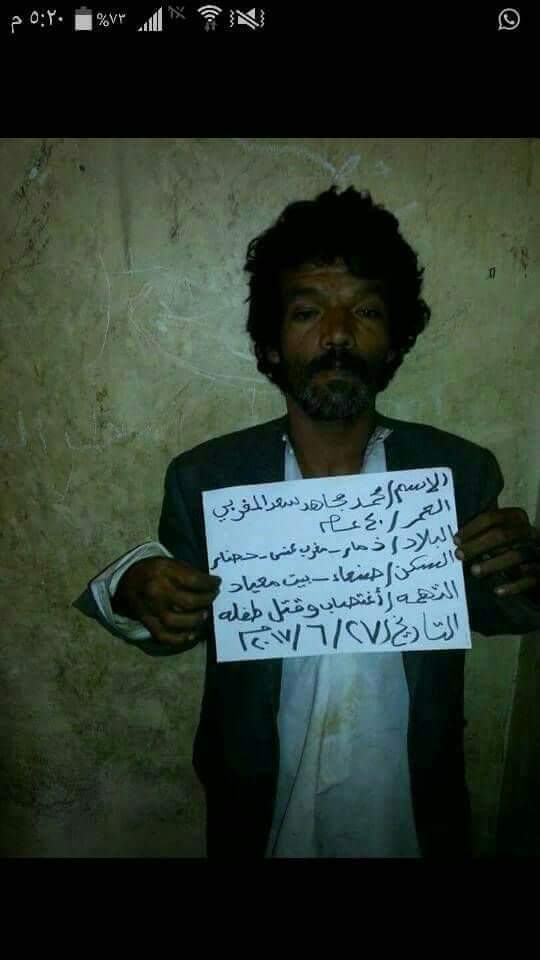 ٥:٢٠ م
%٧٣
الاسم / محمد مجاهد سعد المغربي
العمر / ٤٠ عام
البلاد / ذمار - مغرب عنس -
السكن / صنعاء - بيت معياد
التهمه / أغتصاب وقتل طفله
التاريخ ٢٧ / ٦ / ٢٠١٧م